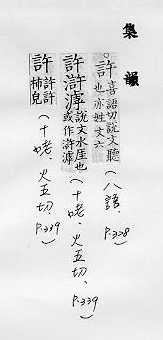 集韻
。許 喜語切說文聽
也亦姓文六
(八語、P.328)
許滸㵀 說文水厓也
或作許㵀
(十姥、火五切、P.339)
許 許許
柿皃
(十姥、火五切、P.339)